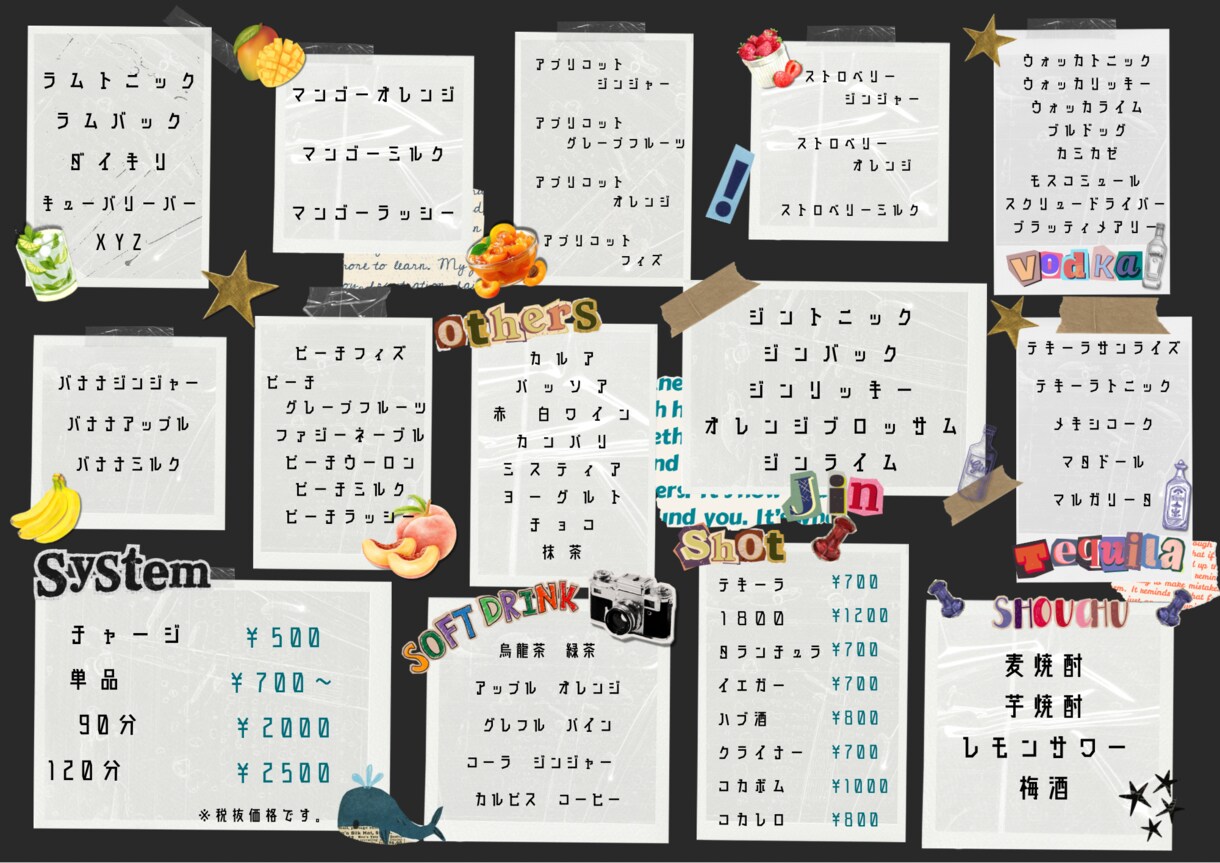 ラムトニック
ラムバック
ダイキリ
キューバリーバー
XYZ
マンゴーオレンジ
マンゴーミルク
マンゴーラッシー
アプリコット
ジンジャー
アプリコット
グレープフルーツ
アプリコット
オレンジ
アプリコット
フィズ
ストロベリー
ジンジャー
ストロベリー
オレンジ
ストロベリーミルク
!
ウォッカトニック
ウォッカリッキー
ウォッカライム
ブルドッグ
カミカゼ
モスコミュール
スクリュードライバー
ブラッティメアリー
vodka
バナナジンジャー
バナナアップル
バナナミルク
ピーチフィズ
ピーチ
グレープフルーツ
ファジーネーブル
ピーチウーロン
ピーチミルク
ピーチラッシー
others
カルア
パッソア
赤 白ワイン
カンパリ
ミスティア
ヨーグルト
チョコ
抹茶
ジントニック
ジンバック
ジンリッキー
オレンジブロッサム
ジンライム
Jin
テキーラサンライズ
テキーラトニック
メキシコーク
マタドール
マルガリータ
Tequila
System
チャージ ¥500
単品 ¥700~
90分 ¥2000
120分 ¥2500
※税抜価格です。
SOFT DRINK
烏龍茶 緑茶
アップル オレンジ
グレフル パイン
コーラ ジンジャー
カルピス コーヒー
Shot
テキーラ ¥700
1800 ¥1200
タランチュラ ¥700
イエガー ¥700
ハブ酒 ¥800
クライナー ¥700
コカボム ¥1000
コカレロ ¥800
SHOUCHU
麦焼酎
芋焼酎
レモンサワー
梅酒
more to learn. My